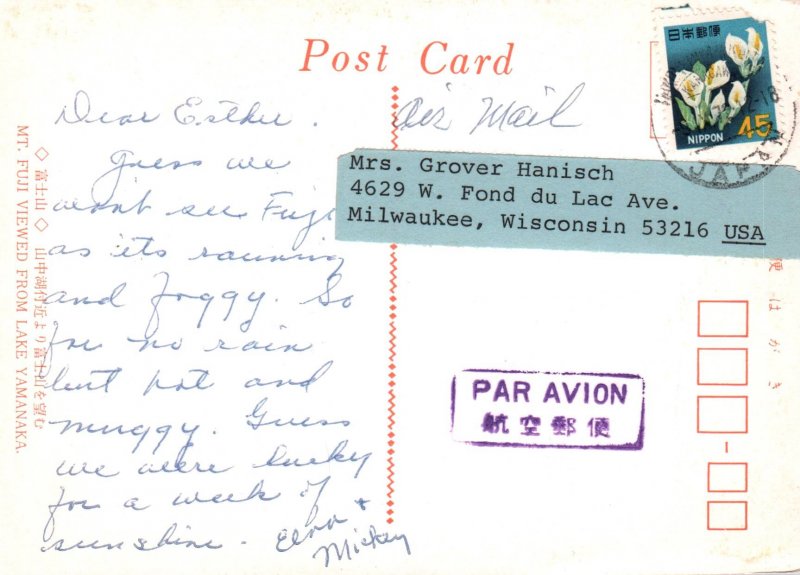 Post Card
Dear Esther.
Guess we
won't see Fuji
as its raining
and foggy. So
far no rain
but hot and
muggy. Guess
we were lucky
for a week of
sunshine.
Mickey
Air Mail
Mrs. Grover Hanisch
4629 W. Fond du Lac Ave.
Milwaukee, Wisconsin 53216 USA
日本郵便
NIPPON 45
JAPAN
PAR AVION
航空郵便
便はがき
◇ 富士山 ◇ 山中湖付近より富士山を望む
MT. FUJI VIEWED FROM LAKE YAMANAKA.